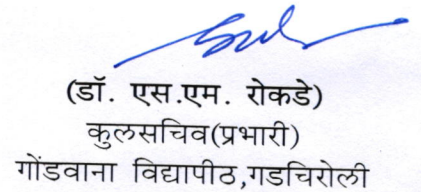 (डॉ. एस.एम. रोकडे)
कुलसचिव(प्रभारी)
गोंडवाना विद्यापीठ,गडचिरोली